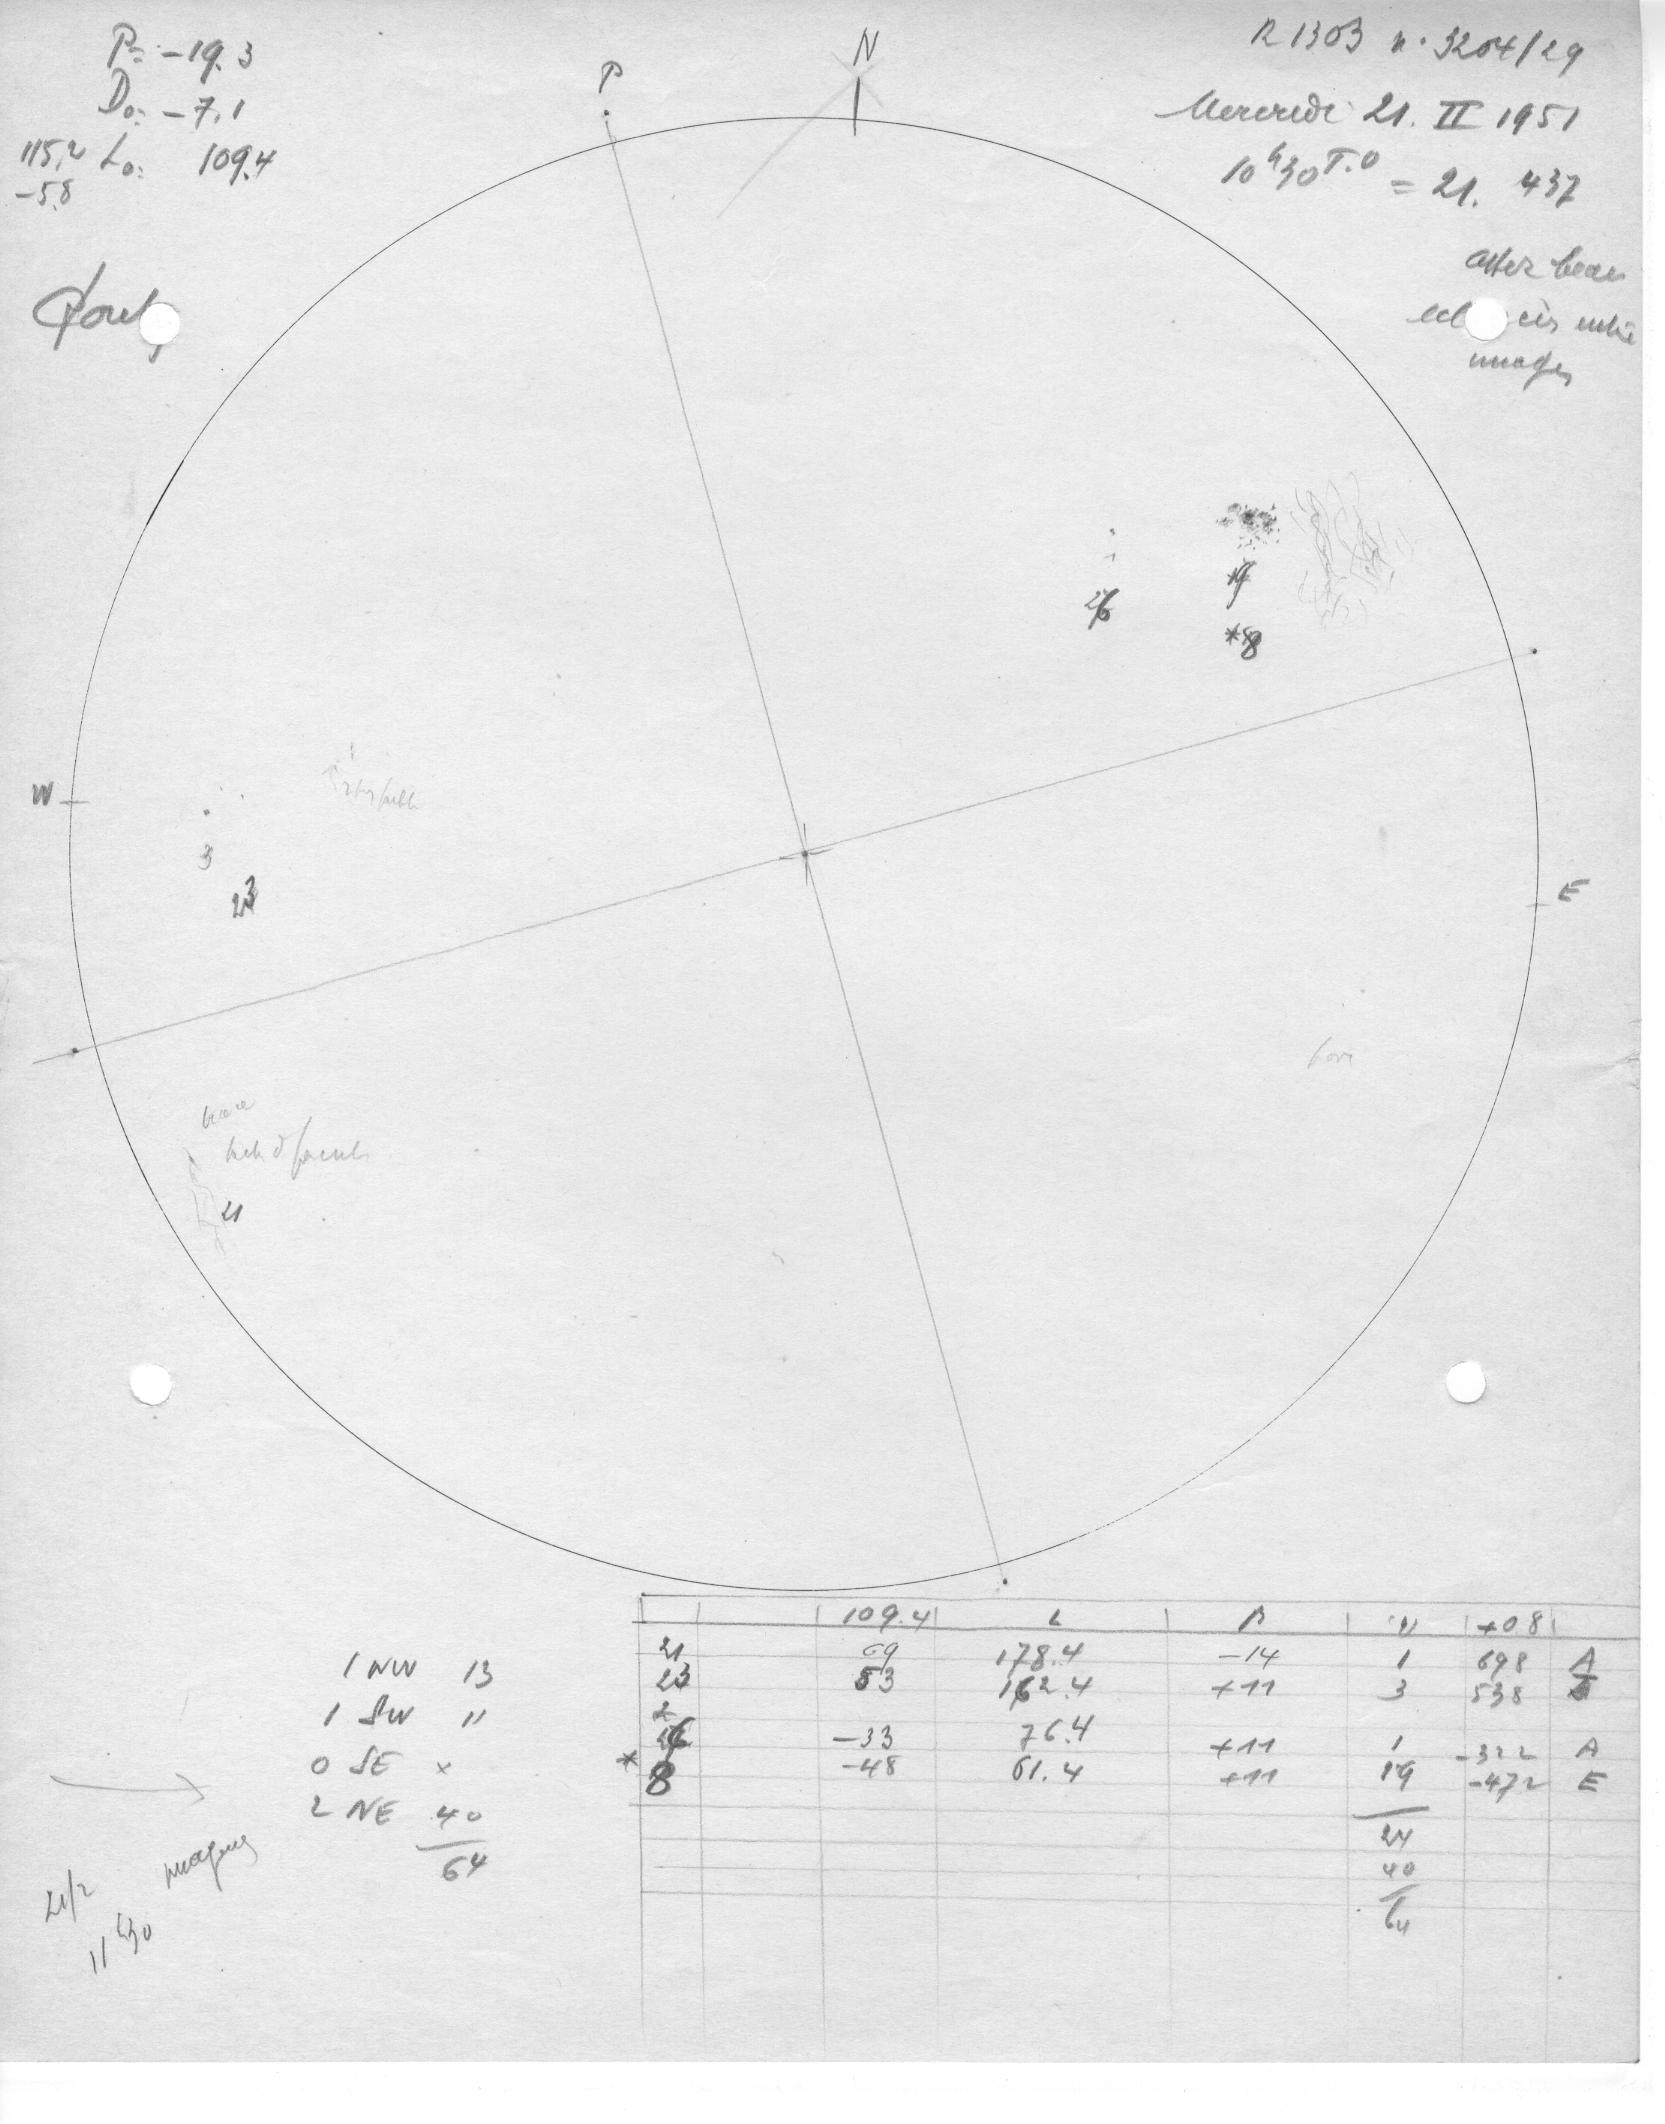 P= -19.3
D₀= -7.1
115,2 L₀= 109.4
-5.8
P
N
R 1303 n. 3204/29
Mercredi 21. II 1951
10ʰ30 T.U = 21. 437
assez beau
images
W
E
26
19
*8
3
23
21
109.4 L B +08
21 69 178.4 -14 1 698 A
23 53 162.4 +11 3 538
26 -33 76.4 +11 1 -322 A
* 8 -48 61.4 +11 19 -472 E
24
40
64
1 NW 13
1 SW 11
0 SE x
2 NE 40
64
21/2 nuages
11ʰ30